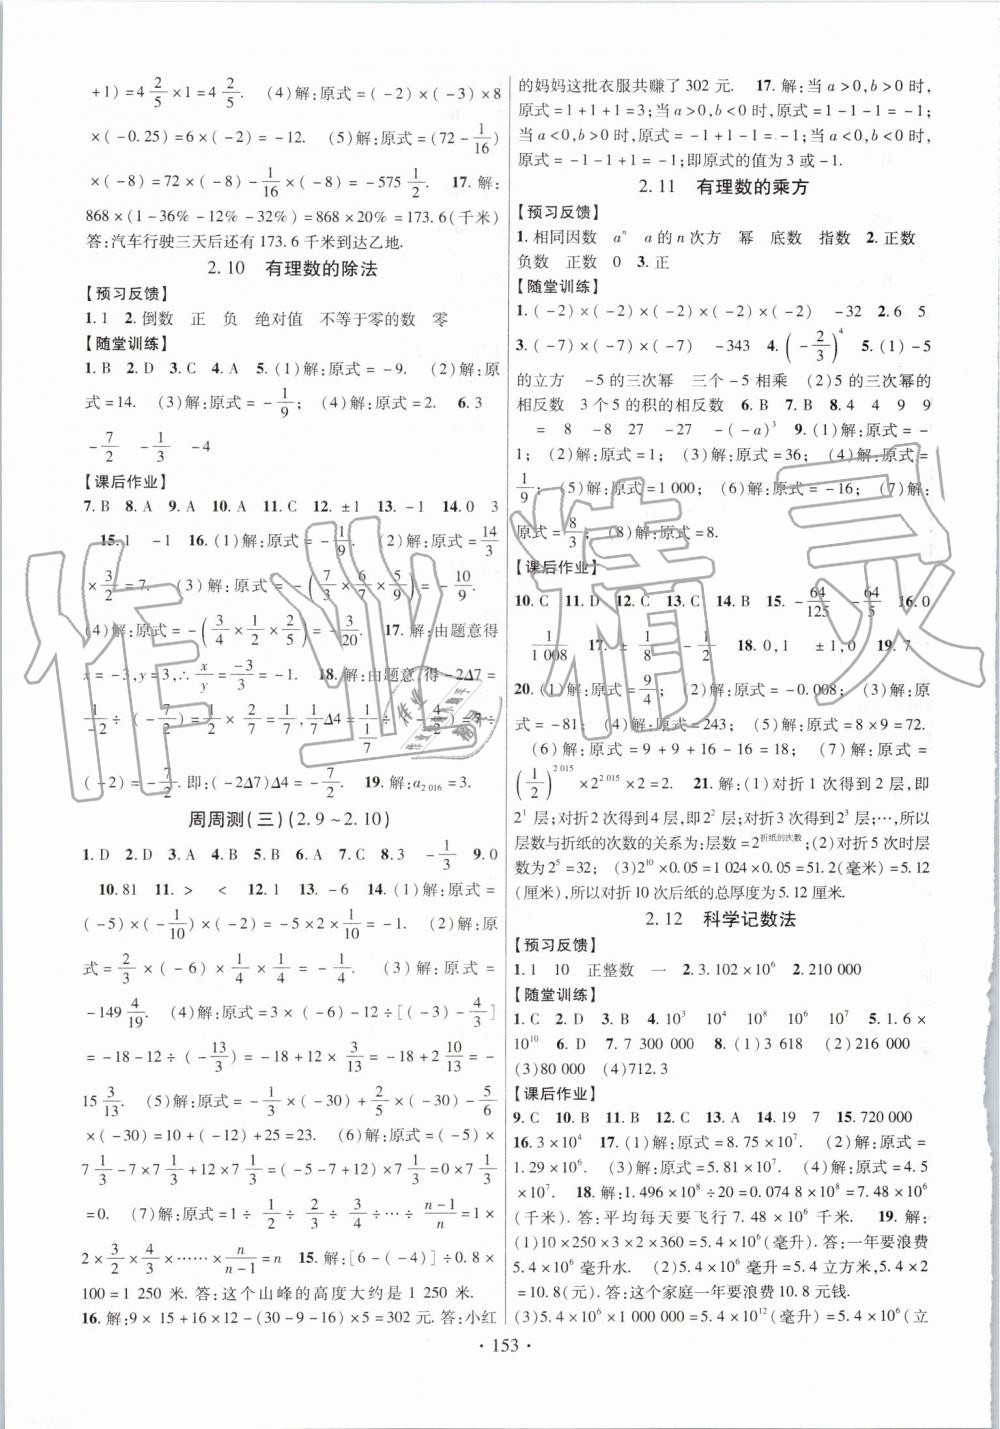 +1)=4 2/5×1=4 2/5. (4)解:原式=(-2)×(-3)×8
×(-0.25)=6×(-2)=-12. (5)解:原式=(72-1/16)
×(-8)=72×(-8)-1/16×(-8)=-575 1/2. 17.解:
868×(1-36%-12%-32%)=868×20%=173.6(千米)
答:汽车行驶三天后还有173.6千米到达乙地.
2.10 有理数的除法
【预习反馈】
1.1 2.倒数 正 负 绝对值 不等于零的数 零
【随堂训练】
1.B 2.D 3.C 4.A 5.(1)解:原式=-9. (2)解:原
式=14. (3)解:原式=-1/9; (4)解:原式=2. 6.3
-7/2 -1/3 -4
【课后作业】
7.B 8.A 9.A 10.A 11.C 12.±1 13.-1 14.0 3
15.1 -1 16.(1)解:原式=-1/9. (2)解:原式=14/3
×3/2=7. (3)解:原式=-(7/3×6/7×5/9)=-10/9.
(4)解:原式=-(3/4×1/2×2/5)=-3/20. 17.解:由题意得
x=-3,y=3,∴x/y=-3/3=-1. 18.解:由题意,得-2Δ7=
1/-2÷(-7/2)=1/2×2/7=1/7,1/7Δ4=
÷(-2)=-7/2.即:(-2Δ7)Δ4=-7/2. 19.解:a₂₀₁₆=3.
周周测(三)(2.9~2.10)
1.D 2.D 3.A 4.A 5.B 6.A 7.C 8.3 -1/3 9.0
10.81 11.> < 12.1 13.-6 14.(1)解:原式=
(-5)×(-1/10)×(-2)=-5×1/10×2=-1. (2)解:原
式=2/3×(-6)×1/4×1/4=-1/4. (3)解:原式=
-149 4/19. (4)解:原式=3×(-6)-12÷[(-3)-4/3]
=-18-12÷(-13/3)=-18+12×3/13=-18+2 10/13=-
15 3/13. (5)解:原式=-1/3×(-30)+2/5×(-30)-5/6
×(-30)=10+(-12)+25=23. (6)解:原式=(-5)×
7 1/3-7×7 1/3+12×7 1/3=(-5-7+12)×7 1/3=0×7 1/3
=0. (7)解:原式=1÷1/2÷2/3÷3/4÷…÷n-1/n=1×
2×3/2×4/3×……×n/n-1=n 15.解:[6-(-4)]÷0.8×
100=1 250 米.答:这个山峰的高度大约是1 250 米.
16.解:9×15+16×12-(30-9-16)×5=302元.答:小红
的妈妈这批衣服共赚了302元. 17.解:当a>0,b>0时,
原式=1+1+1=3;当a>0,b<0时,原式=1-1-1=-1;
当a<0,b>0时,原式=-1+1-1=-1;当a<0,b<0时,
原式=-1-1+1=-1;即原式的值为3或-1.
2.11 有理数的乘方
【预习反馈】
1.相同因数 aⁿ a的n次方 幂 底数 指数 2.正数
负数 正数 0 3.正
【随堂训练】
1.(-2)×(-2)×(-2)×(-2)×(-2) -32 2.6 5
3.(-7)×(-7)×(-7) -343 4.(-2/3)⁴ 5.(1)-5
的立方 -5的三次幂 三个-5相乘 (2)5的三次幂的
相反数 3个5的积的相反数 6.B 7.B 8.4 4 9 9
= 8 -8 27 -27 -(-a)³ 9.(1)解:原式=-
1; (2)解:原式=1; (3)解:原式=36; (4)解:原式=
1/9; (5)解:原式=1 000; (6)解:原式=-16; (7)解:
原式=8/3; (8)解:原式=8.
【课后作业】
10.C 11.D 12.C 13.C 14.B 15.-64/125 -64/5 16.0
1/1 008 17.±1/8 -1/2 18.0,1 ±1,0 19.7
20.(1)解:原式=9/4; (2)解:原式=-0.008; (3)解:原
式=-81; (4)解:原式=243; (5)解:原式=8×9=72.
(6)解:原式=9+9+16-16=18; (7)解:原式=
(1/2)²⁰¹⁵×2²⁰¹⁵×2=2. 21.解:(1)对折1次得到2层,即
2¹层;对折2次得到4层,即2²层;对折3次得到2³层;…,所以
层数与折纸的次数的关系为:层数=2^折纸的次数;(2)对折5次时层
数为2⁵=32; (3)2¹⁰×0.05=1 024×0.05=51.2(毫米)=5.12
(厘米),所以对折10次后纸的总厚度为5.12厘米.
2.12 科学记数法
【预习反馈】
1.1 10 正整数 一 2.3.102×10⁶ 2.210 000
【随堂训练】
1.C 2.D 3.B 4.10³ 10⁴ 10⁵ 10⁶ 10⁷ 5.1.6×
10¹⁰ 6.D 7.7 300 000 8.(1)3 618 (2)216 000
(3)80 000 (4)712.3
【课后作业】
9.C 10.B 11.B 12.C 13.A 14.19 7 15.720 000
16.3×10⁴ 17.(1)解:原式=8.75×10⁷. (2)解:原式=
1.29×10⁶. (3)解:原式=5.81×10⁷. (4)解:原式=4.5
×10⁷. 18.解:1.496×10⁸÷20=0.074 8×10⁸=7.48×10⁶
(千米).答:平均每天要飞行7.48×10⁶千米. 19.解:
(1)10×250×3×2×360=5.4×10⁶(毫升).答:一年要浪费
5.4×10⁶毫升水. (2)5.4×10⁶毫升=5.4立方米,5.4×2
=10.8(元).答:这个家庭一年要浪费10.8元钱.
(3)5.4×10⁶×1 000 000=5.4×10¹²(毫升)=5.4×10⁶(立
·153·
作业精灵